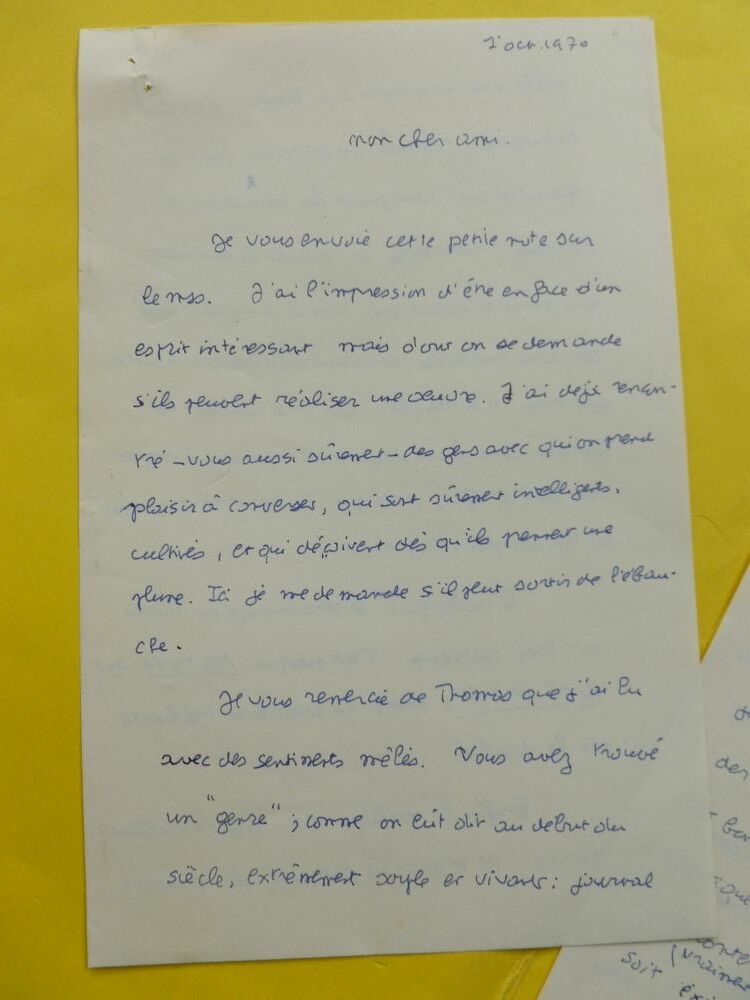 2 oct. 1970
mon cher ami.
Je vous envoie cette petite note sur
le mss. J'ai l'impression d'être en face d'un
esprit intéressant mais dont on se demande
s'ils peuvent réaliser une oeuvre. J'ai déjà rencon-
tré – vous aussi sûrement – des gens avec qui on prend
plaisir à converser, qui sont sûrement intelligents,
cultivés, et qui déçoivent dès qu'ils prennent une
plume. Ici je me demande s'il peut sortir de l'ébau-
che.
Je vous remercie de Thomas que j'ai lu
avec des sentiments mêlés. Vous avez trouvé
un "genre" ; comme on eût dit au début du
siècle, extrêmement souple et vivant : journal
des
soit